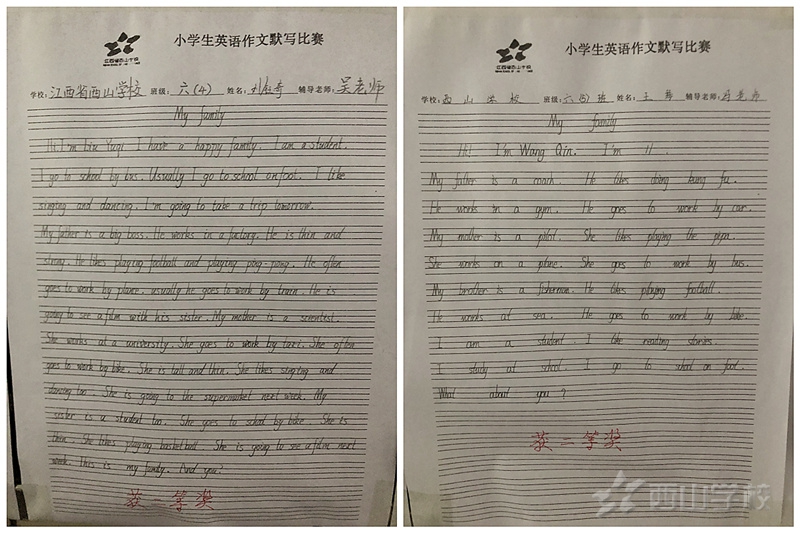 江西省西山学校
小学生英语作文默写比赛
学校: 江西省西山学校 班级: 六(4) 姓名: 刘 奇 辅导老师: 吴老师
My family
Hi I'm Liu Yuqi I have a happy family. I am a student.
I go to school by bus. Usually I go to school on foot. I like
singing and dancing. I'm going to take a trip tomorrow.
My father is a big boss. He works in a factory. He is thin and
strong. He likes playing football and playing ping-pong. He often
goes to work by plane. usually he goes to work by train. He is
going to see a film with his sister. My mother is a scientist.
She works at a university. She goes to work by taxi. She often
goes to work by bike. She is tall and thin. She likes singing and
dancing too. She is going to the supermarket next week. My
sister is a student too. She goes to school by bike. She is
thin. She likes playing basketball. She is going to see a film next
week. this is my family. And you?
获一等奖
江西省西山学校
小学生英语作文默写比赛
学校: 西山学校 班级: 六(5)班 姓名: 王 辅导老师: 老师
My family
Hi! I'm Wang Qin. I'm 11.
My father is a coach. He likes doing kung fu.
He works in a gym. He goes to work by car.
My mother is a pilot. She likes playing the pipa.
She works on a plane. She goes to work by bus.
My brother is a fisherman. He likes playing football.
He works at sea. He goes to work by bike.
I am a student. I like reading stories.
I study at school. I go to school on foot.
What about you?
获二等奖
西山学校